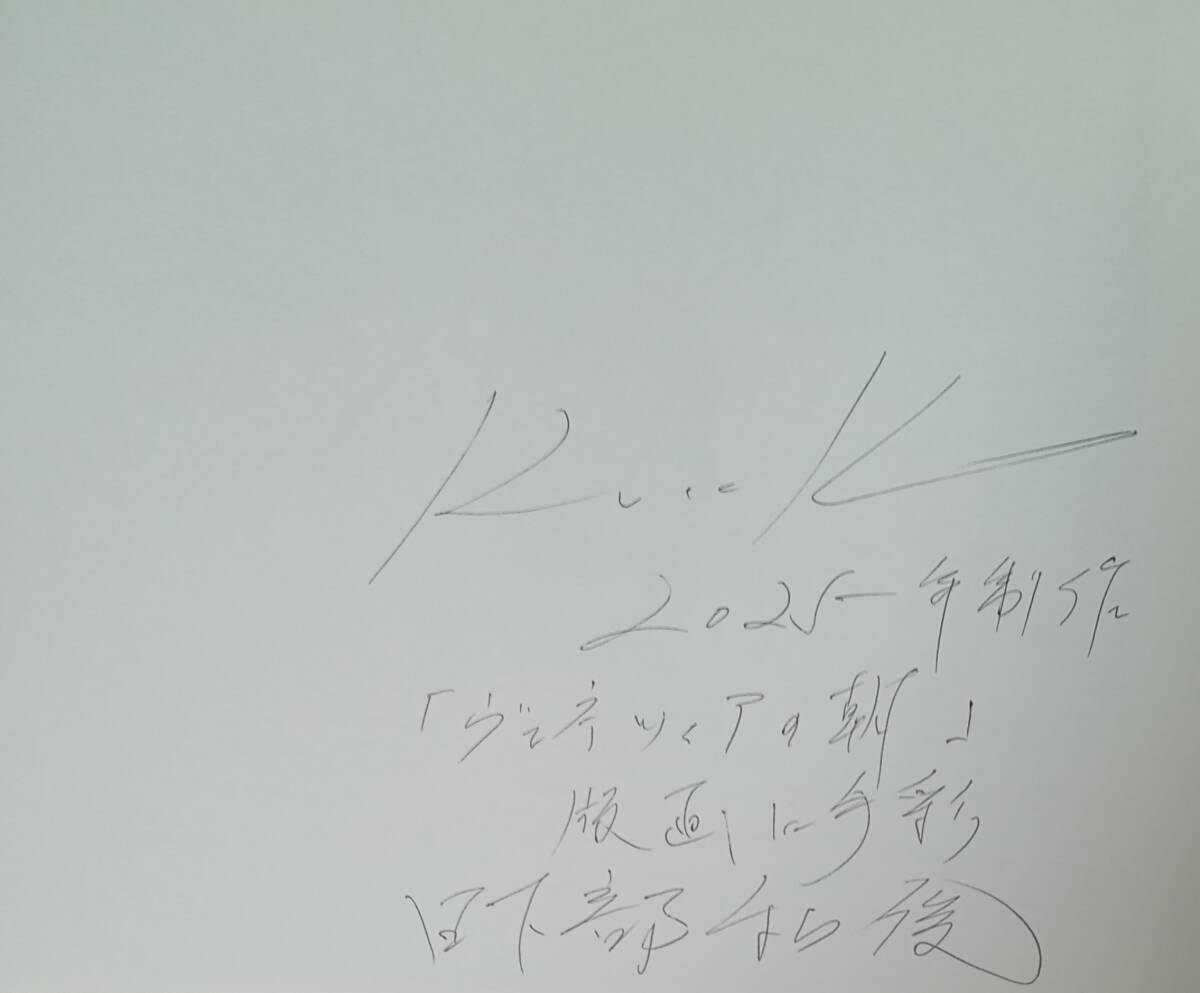 2025年制作
「ヴェネツィアの朝」
版画に手彩
日下部